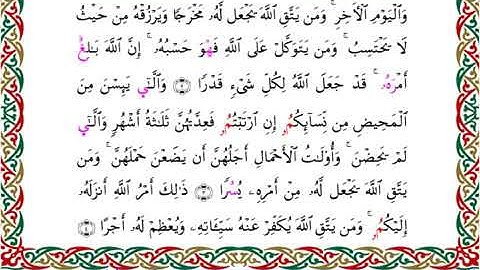 وَالْيَوْمِ الْأَخِرِ ۚ وَمَن يَتَّقِ اللَّهَ يَجْعَل لَّهُۥ مَخْرَجًا وَيَرْزُقْهُ مِنْ حَيْثُ
لَا يَحْتَسِبُ ۚ وَمَن يَتَوَكَّلْ عَلَى اللَّهِ فَهْوَ حَسْبُهُۥ ۚ إِنَّ اللَّهَ بَٰلِغٌ
أَمْرَهُۥ ۚ قَدْ جَعَلَ اللَّهُ لِكُلِّ شَىْءٍ قَدْرًا وَالَّٰٓـِٔي يَئِسْنَ مِنَ
الْمَحِيضِ مِن نِّسَآئِكُمُۥٓ إِنِ ارْتَبْتُمْ فَعِدَّتُهُنَّ ثَلَٰثَةُ أَشْهُرٍ وَالَّٰٓـِٔي
لَمْ يَحِضْنَ ۚ وَأُوْلَٰتُ الْأَحْمَالِ أَجَلُهُنَّ أَن يَضَعْنَ حَمْلَهُنَّ ۚ وَمَن
يَتَّقِ اللَّهَ يَجْعَل لَّهُۥ مِنْ أَمْرِهِۦ يُسْرًا ذَٰلِكَ أَمْرُ اللَّهِ أَنزَلَهُۥٓ
إِلَيْكُمُۥ ۚ وَمَن يَتَّقِ اللَّهَ يُكَفِّرْ عَنْهُ سَيِّـَٔاتِهِۦ وَيُعْظِمْ لَهُۥٓ أَجْرًا